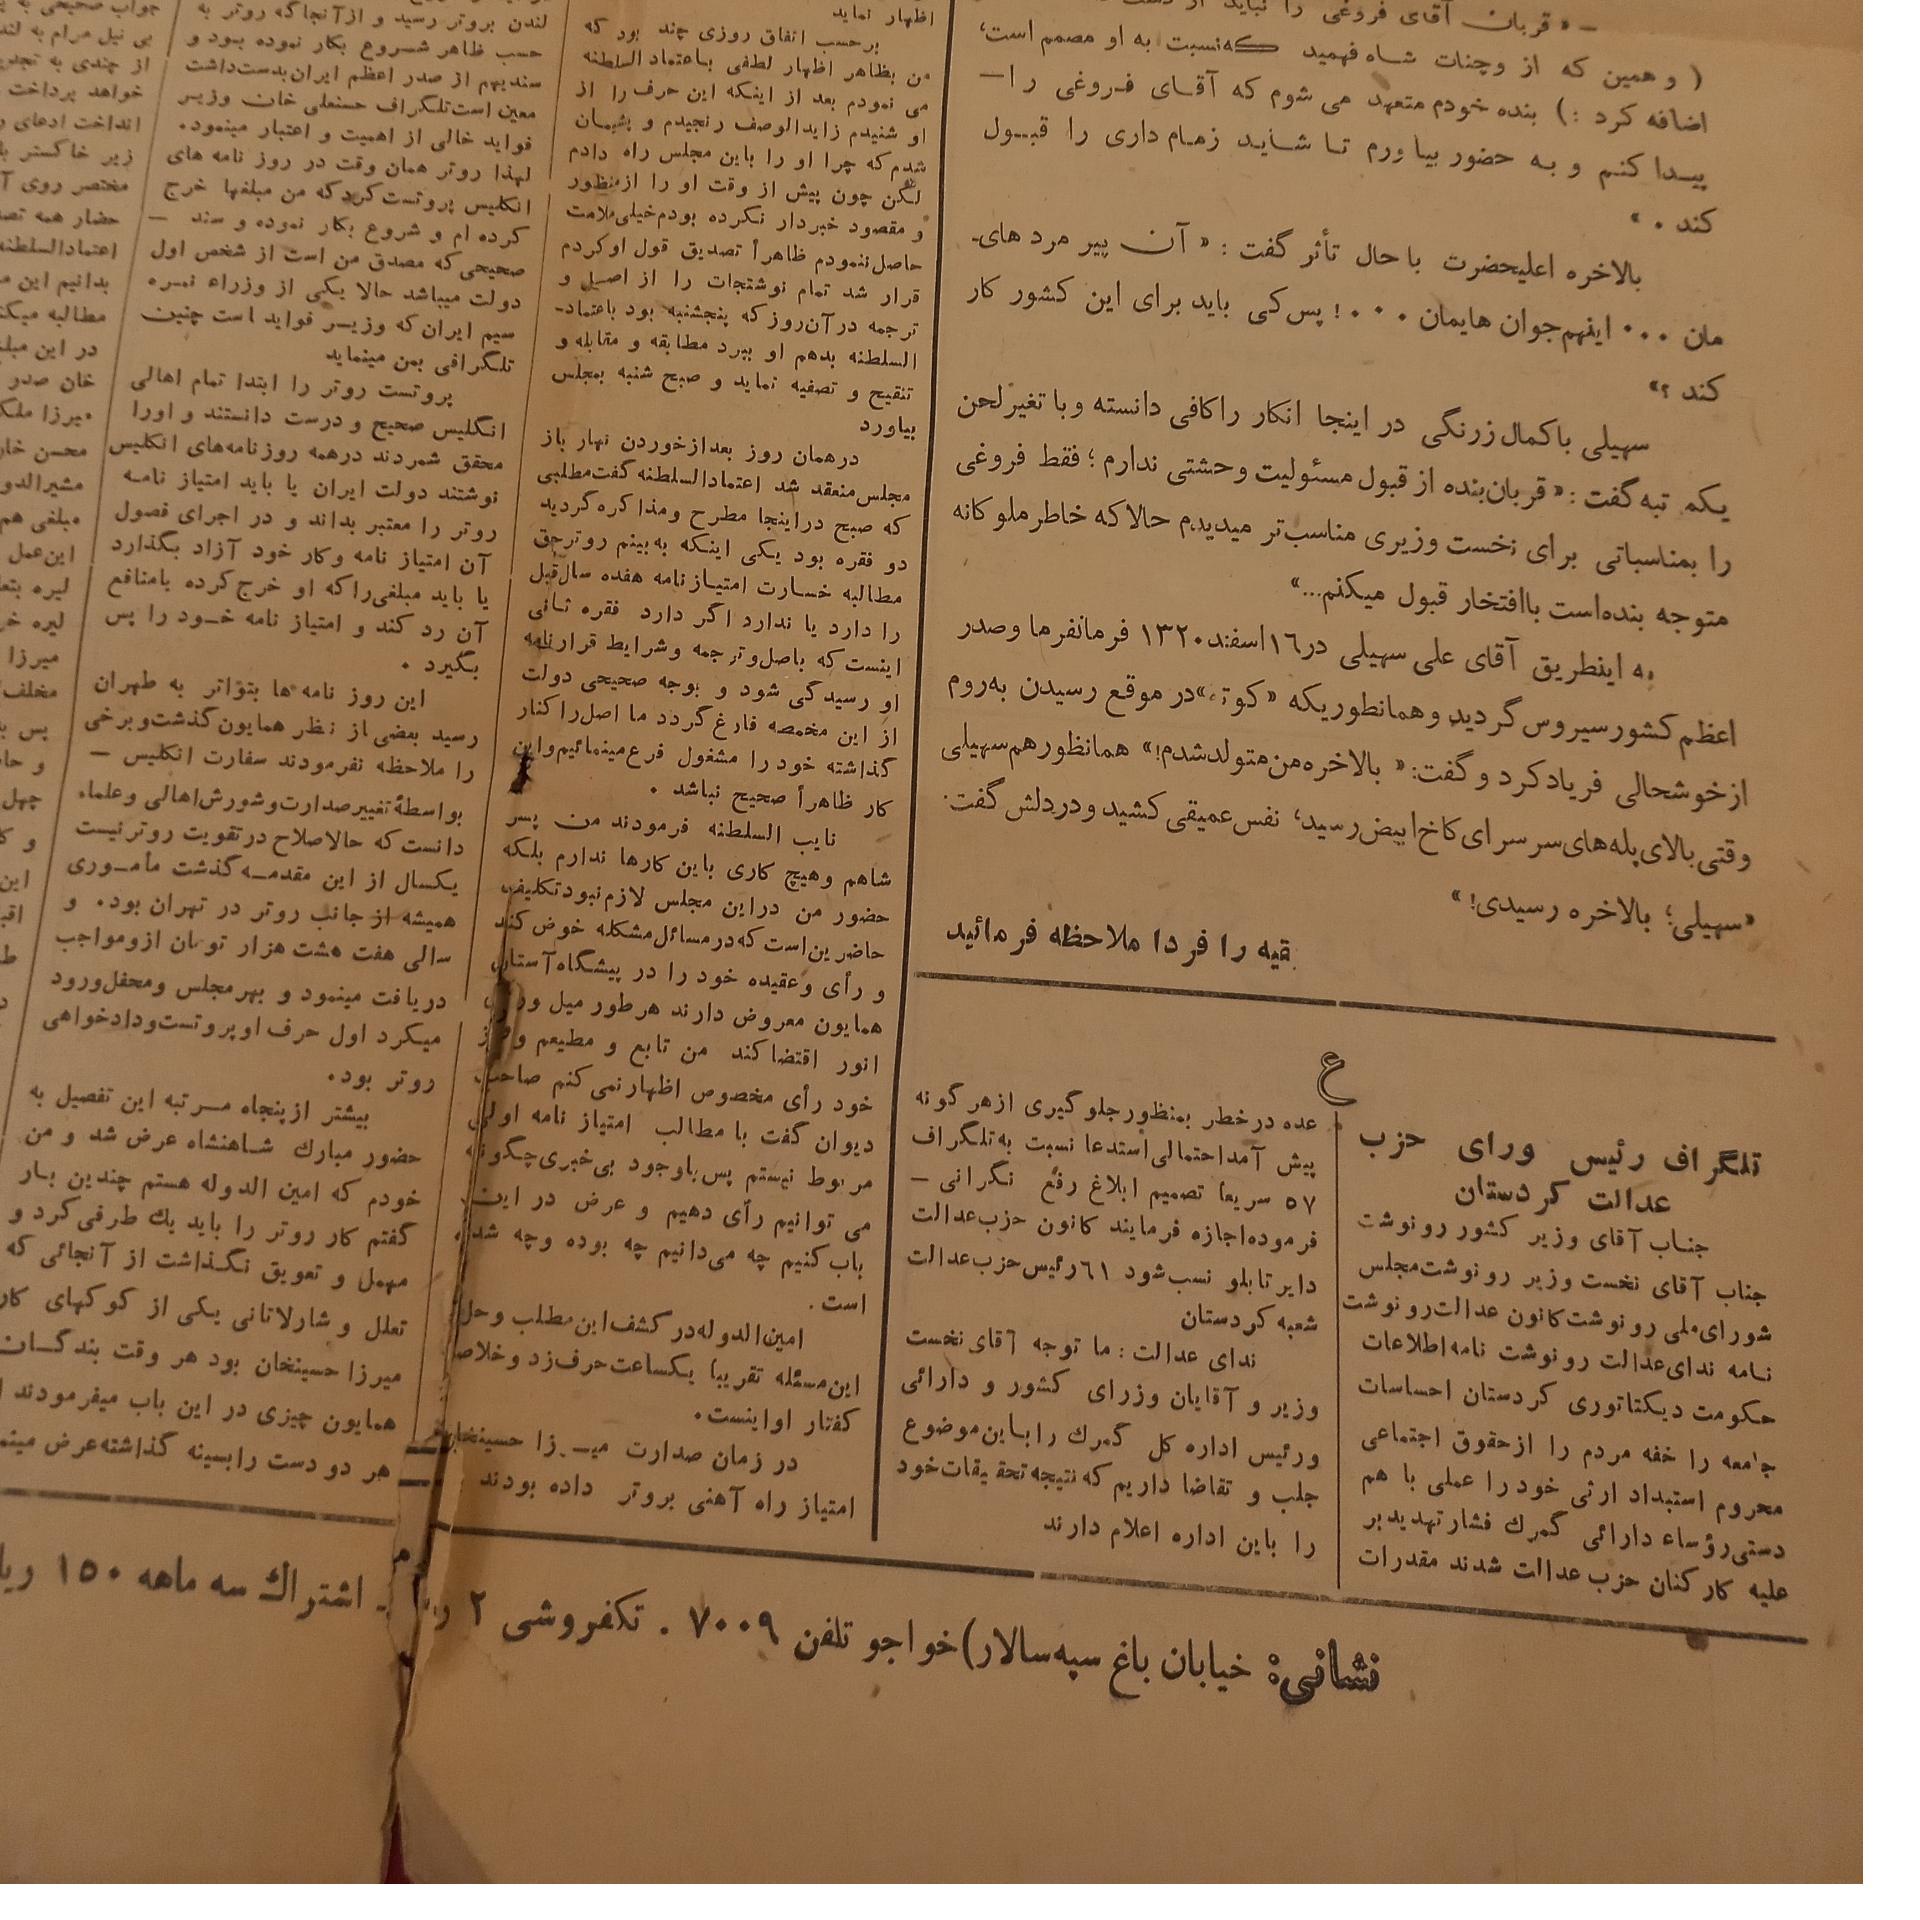 – « قربان آقای فروغی را نباید از دست
( و همین که از وجنات شاه فهمید که نسبت به او مصمم است،
اضافه کرد :) بنده خودم متعهد می شوم که آقای فروغی را–
پیدا کنم و به حضور بیاورم تا شاید زمام داری را قبول
کند . »
بالاخره اعلیحضرت با حال تأثر گفت : « آن پیر مرد های-
مان ۰۰۰ اینهم جوان هایمان ۰۰۰! پس کی باید برای این کشور کار
کند ؟»
سهیلی با کمال زرنگی در اینجا انکار را کافی دانسته و با تغیر لحن
یکمر تبه گفت : « قربان بنده از قبول مسئولیت وحشتی ندارم ؛ فقط فروغی
را بمناسباتی برای نخست وزیری مناسب‌تر میدیدم حالا که خاطر ملوکانه
متوجه بنده است با افتخار قبول میکنم...»
به اینطریق آقای علی سهیلی در ۱۶ اسفند ۱۳۲۰ فرمانفرما و صدر
اعظم کشور سیروس گردید و همانطوریکه «کوته» در موقع رسیدن به روم
از خوشحالی فریاد کرد و گفت: « بالاخره من متولد شدم!» همانطور هم سهیلی
وقتی بالای پله‌های سرسرای کاخ ابیض رسید، نفس عمیقی کشید و در دلش گفت:
«سهیلی؛ بالاخره رسیدی!»
بقیه را فردا ملاحظه فرمائید
ع
تلگراف رئیس ورای حزب
عدالت کردستان
جناب آقای وزیر کشور رونوشت
جناب آقای نخست وزیر رونوشت مجلس
شورای ملی رونوشت کانون عدالت رونوشت
نامه ندای عدالت رونوشت نامه اطلاعات
حکومت دیکتاتوری کردستان احساسات
جامعه را خفه مردم را از حقوق اجتماعی
محروم استبداد ارثی خود را عملی با هم
دستی رؤساء دارائی گمرك فشار تهدید بر
علیه کارکنان حزب عداالت شدند مقدرات
عده در خطر بمنظور جلوگیری از هر گونه
پیش آمد احتمالی استدعا نسبت به تلگراف
۵۷ سریعا تصمیم ابلاغ رفع نگرانی –
فرموده اجازه فرمایند کانون حزب عدالت
دایر تابلو نسب شود ۶۱ رئیس حزب عدالت
شعبه کردستان
ندای عدالت : ما توجه آقای نخست
وزیر و آقایان وزرای کشور و دارائی
ورئیس اداره کل گمرك را باین موضوع
جلب و تقاضا داریم که نتیجه تحقیقات خود
را باین اداره اعلام دارند
اظهار نماید
برحسب اتفاق روزی چند بود که
من بظاهر اظهار لطفی باعتماد السلطنه
می نمودم بعد از اینکه این حرف را از
او شنیدم زاید الوصف رنجیدم و پشیمان
شدم که چرا او را باین مجلس راه دادم
لکن چون پیش از وقت او را از منظور
و مقصود خبردار نکرده بودم خیلی ملامت
حاصل ننمودم ظاهراً تصدیق قول او کردم
قرار شد تمام نوشتجات را از اصل و
ترجمه در آن روز که پنجشنبه بود باعتماد-
السلطنه بدهم او ببرد مطابقه و مقابله و
تنقیح و تصفیه نماید و صبح شنبه بمجلس
بیاورد
درهمان روز بعد از خوردن نهار باز
مجلس منعقد شد اعتماد السلطنه گفت مطلبی
که صبح در اینجا مطرح و مذاکره گردید
دو فقره بود یکی اینکه به بینم روتر حق
مطالبه خسارت امتیاز نامه هفده سال قبل
را دارد یا ندارد اگر دارد فقره ثانی
اینست که باصل و ترجمه و شرایط قرارنامه
او رسیدگی شود و بوجه صحیحی دولت
از این مخمصه فارغ گردد ما اصل را کنار
گذاشته خود را مشغول فرع مینمائیم و این
کار ظاهراً صحیح نباشد .
نایب السلطنه فرمودند من پسر
شاهم و هیچ کاری باین کارها ندارم بلکه
حضور من در این مجلس لازم نبود تکلیف
حاضرین است که در مسائل مشکله خوض کند
و رأی و عقیده خود را در پیشگاه آستان
همایون معروض دارند هر طور میل
انور اقتضا کند من تابع و مطیعم
خود رأی مخصوص اظهار نمی کنم صاحب
دیوان گفت با مطالب امتیاز نامه اولی
مربوط نیستم پس باوجود بی خبری چگونه
می توانیم رأی دهیم و عرض در این
باب کنیم چه می دانیم چه بوده و چه شده
است .
امین الدوله در کشف این مطلب و حل
این مسئله تقریبا یکساعت حرف زد و خلاصه
گفتار او اینست.
در زمان صدارت میرزا حسینخان
امتیاز راه آهنی بروتر داده بودند
لندن بروتر رسید و از آنجا که روتر به
حسب ظاهر شروع بکار نموده بود و
سندیهم از صدر اعظم ایران بدست داشت
معین است تلگراف حسنعلی خان وزیر
فواید خالی از اهمیت و اعتبار مینمود.
لهذا روتر همان وقت در روز نامه های
انگلیس پروتست کرد که من مبلغها خرج
کرده ام و شروع بکار نموده و سند –
صحیحی که مصدق من است از شخص اول
دولت میباشد حالا یکی از وزراء نمره
سیم ایران که وزیر فواید است چنین
تلگرافی بمن مینماید
پروتست روتر را ابتدا تمام اهالی
انگلیس صحیح و درست دانستند و اورا
محقق شمردند درهمه روزنامه‌های انگلیس
نوشتند دولت ایران یا باید امتیاز نامه
روتر را معتبر بداند و در اجرای فصول
آن امتیاز نامه و کار خود آزاد بگذارد
یا باید مبلغی را که او خرج کرده بامنافع
آن رد کند و امتیاز نامه خود را پس
بگیرد .
این روز نامه ها بتواتر به طهران
رسید بعضی از نظر همایون گذشت و برخی
را ملاحظه نفرمودند سفارت انگلیس –
بواسطهٔ تغییر صدارت و شورش اهالی و علماء
دانست که حالا صلاح در تقویت روتر نیست
یکسال از این مقدمه گذشت مأموری
همیشه از جانب روتر در تهران بود. و
سالی هفت هشت هزار تومان ازو مواجب
دریافت مینمود و بهر مجلس و محفل ورود
میکرد اول حرف او پروتست و دادخواهی
روتر بود.
بیشتر از پنجاه مرتبه این تفصیل به
حضور مبارك شاهنشاه عرض شد و من
خودم که امین الدوله هستم چندین بار
گفتم کار روتر را باید یك طرفی کرد و
مهمل و تعویق نگذاشت از آنجائی که
تعلل و شارلاتانی یکی از کوکهای کار
میرزا حسینخان بود هر وقت بندگان
همایون چیزی در این باب میفرمودند
هر دو دست را بسینه گذاشته عرض
جواب صحیحی به
بی نیل مرام به
از چندی به
خواهد پرداخت
انداخت ادعای
زیر خاکستر
مختصر روی
حضار همه
اعتماد السلطنه
بدانیم این
مطالبه
در این
خان صدر
میرزا
محسن
مبلغی هم
این عمل
لیره
لیره
میرزا
پس
چهل
نشانی: خیابان باغ سپه‌سالار)خواجو تلفن ۷۰۰۹ . تکفروشی ۲ اشتراك سه ماهه ۱۵۰